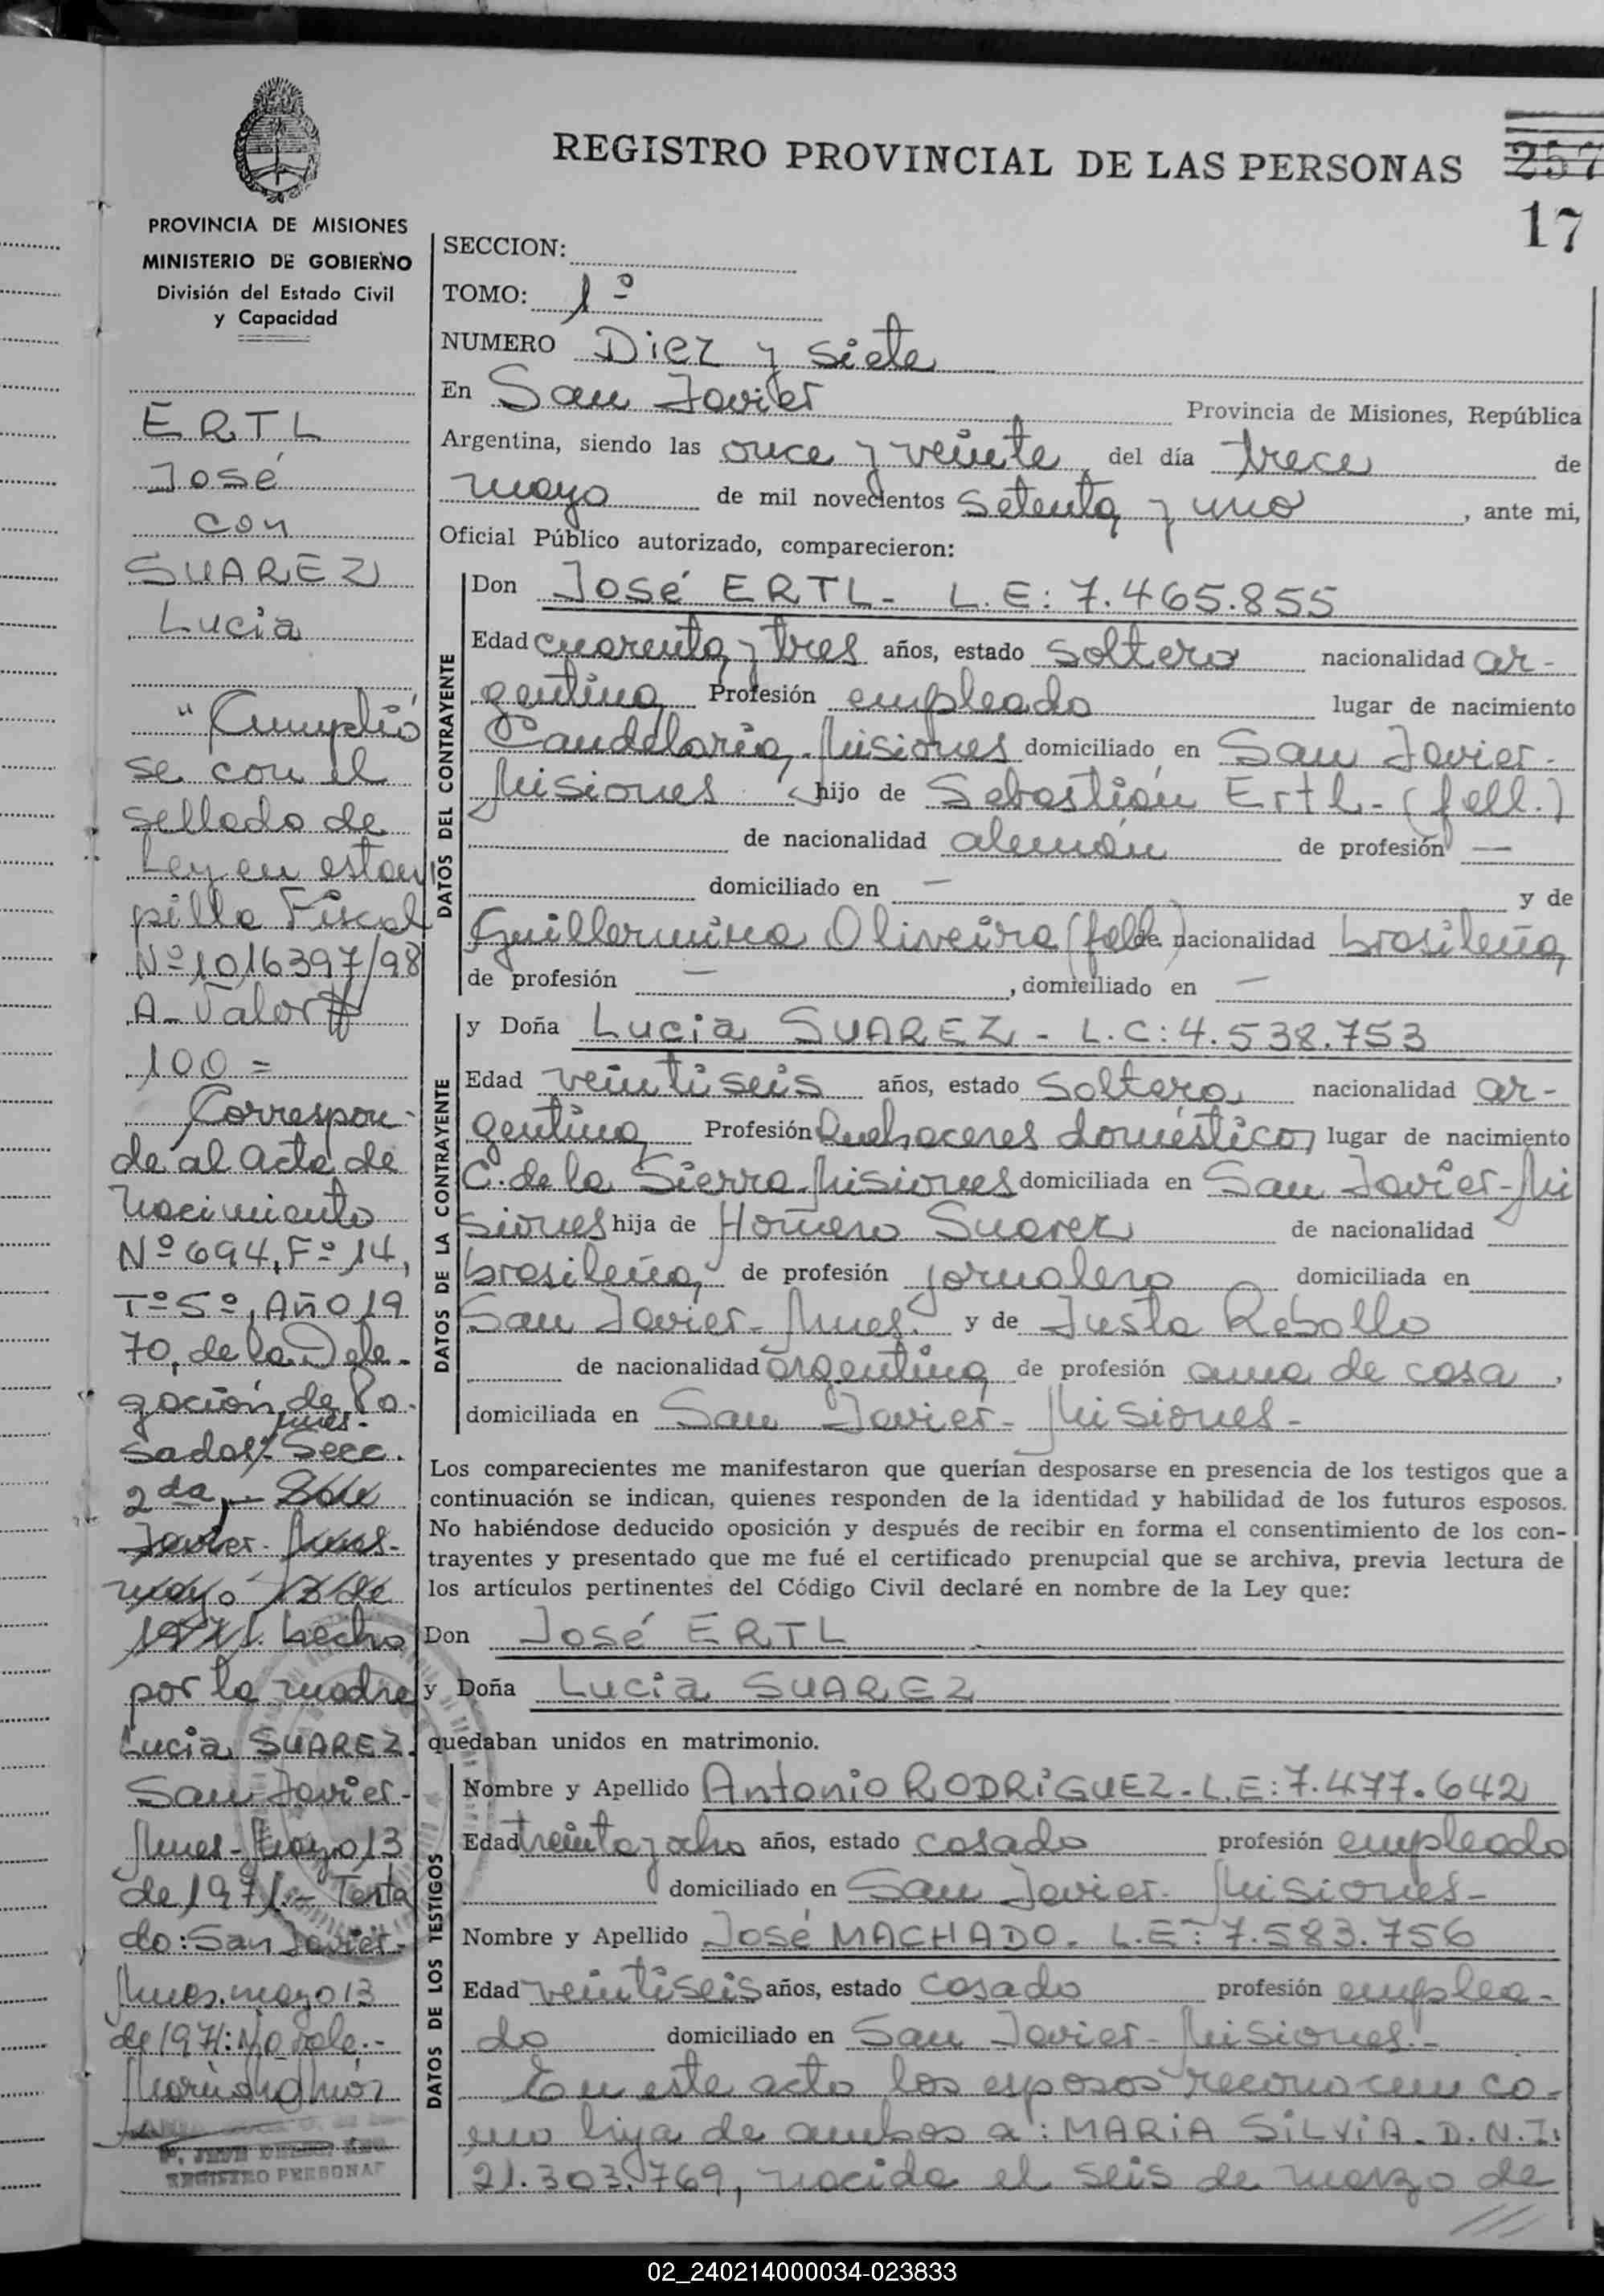 REGISTRO PROVINCIAL DE LAS PERSONAS
257
17
PROVINCIA DE MISIONES
MINISTERIO DE GOBIERNO
División del Estado Civil
y Capacidad
ERTL
José
con
SUAREZ
Lucia
"Cumplió
se con el
sellado de
Ley en estam
pilla Fiscal
Nº 1016397/98
A- Valor $
100 =
Correspon-
de al acta de
Nacimiento
Nº 694, Fº 14,
Tº 5º, Año 19
70, de la Dele-
gación de Po-
sadas Mnes.- Secc.
2da,-
Javier- Mnes-
mayo 13 de
1971. hecho
por la madre
Lucia SUAREZ.
San Javier-
Mnes- Mayo 13
de 1971.- Testa
do: San Javier-
Mnes. mayo 13
de 1971: No vale.-
REGISTRO PERSONAS
SECCION:
TOMO: 1º
NUMERO Diez y siete
En San Javier Provincia de Misiones, República
Argentina, siendo las once y veinte del día trece de
mayo de mil novecientos setenta y uno, ante mi,
Oficial Público autorizado, comparecieron:
DATOS DEL CONTRAYENTE
Don José ERTL- L.E: 7.465.855
Edad cuarenta y tres años, estado soltero nacionalidad ar-
gentina Profesión empleado lugar de nacimiento
Candelaria- Misiones domiciliado en San Javier-
Misiones hijo de Sebastián Ertl- (fall.)
de nacionalidad alemán de profesión —
domiciliado en — y de
Guillermina Oliveira (fall.) de nacionalidad brasileña
de profesión —, domiciliado en —
DATOS DE LA CONTRAYENTE
y Doña Lucia SUAREZ- L.C: 4.538.753
Edad veintiseis años, estado soltera nacionalidad ar-
gentina Profesión Quehaceres doméstico, lugar de nacimiento
C. de la Sierra-Misiones domiciliada en San Javier-Mi
siones hija de Homero Suarez de nacionalidad
brasileña de profesión jornalero domiciliada en
San Javier- Mnes. y de Justa Rebollo
de nacionalidad argentina de profesión ama de casa,
domiciliada en San Javier- Misiones-
Los comparecientes me manifestaron que querían desposarse en presencia de los testigos que a
continuación se indican, quienes responden de la identidad y habilidad de los futuros esposos.
No habiéndose deducido oposición y después de recibir en forma el consentimiento de los con-
trayentes y presentado que me fué el certificado prenupcial que se archiva, previa lectura de
los artículos pertinentes del Código Civil declaré en nombre de la Ley que:
Don José ERTL
y Doña Lucia SUAREZ
quedaban unidos en matrimonio.
DATOS DE LOS TESTIGOS
Nombre y Apellido Antonio RODRIGUEZ- L.E: 7.477.642
Edad treinta y ocho años, estado casado profesión empleado
domiciliado en San Javier- Misiones-
Nombre y Apellido José MACHADO- L.E: 7.583.756
Edad veintiseis años, estado casado profesión emplea-
do domiciliado en San Javier- Misiones.-
En este acto los esposos reconocen co-
mo hija de ambos a: MARIA SILVIA- D.N.I:
21.303.769, nacida el seis de marzo de
02_240214000034-023833